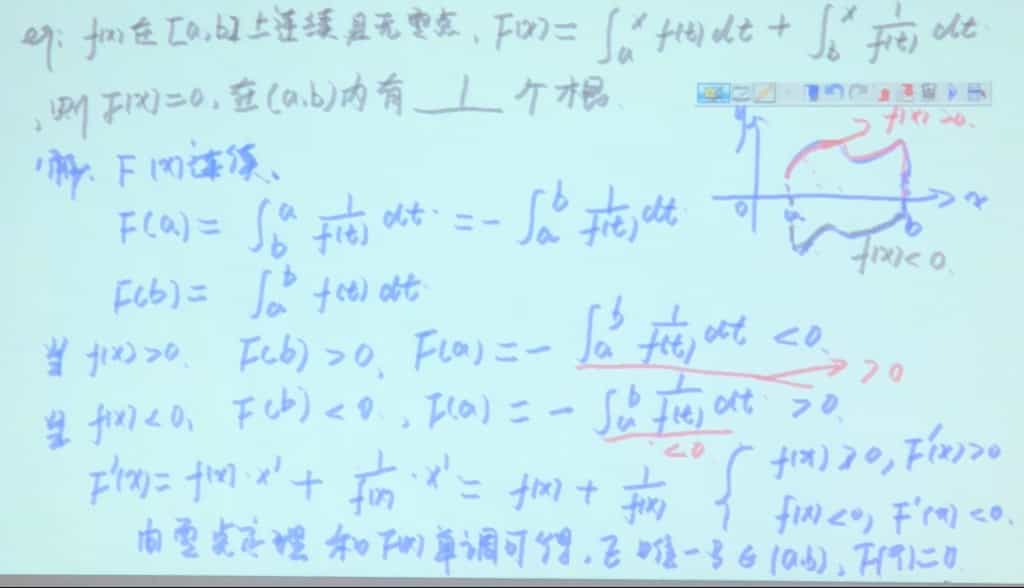 eg: f(x)在[a,b]上连续且无零点, F(x)=∫ₐˣ f(t)dt + ∫_bˣ 1/f(t) dt.
,则 F(x)=0, 在(a,b)内有 1 个根.
解. F(x)连续.
F(a)= ∫_b^a 1/f(t) dt. = - ∫_a^b 1/f(t) dt.
F(b)= ∫_a^b f(t) dt.
当 f(x)>0. F(b)>0, F(a)= - ∫_a^b 1/f(t) dt <0.
>0
当 f(x)<0, F(b)<0., F(a)= - ∫_a^b 1/f(t) dt >0.
<0
F'(x)= f(x)·x' + 1/f(x) ·x' = f(x) + 1/f(x) { f(x)>0, F'(x)>0
f(x)<0, F'(x)<0.
由零点定理和F(x)单调可得, 唯一 ∈(a,b), F( )=0.
y
f(x)>0.
0 a b x
f(x)<0.